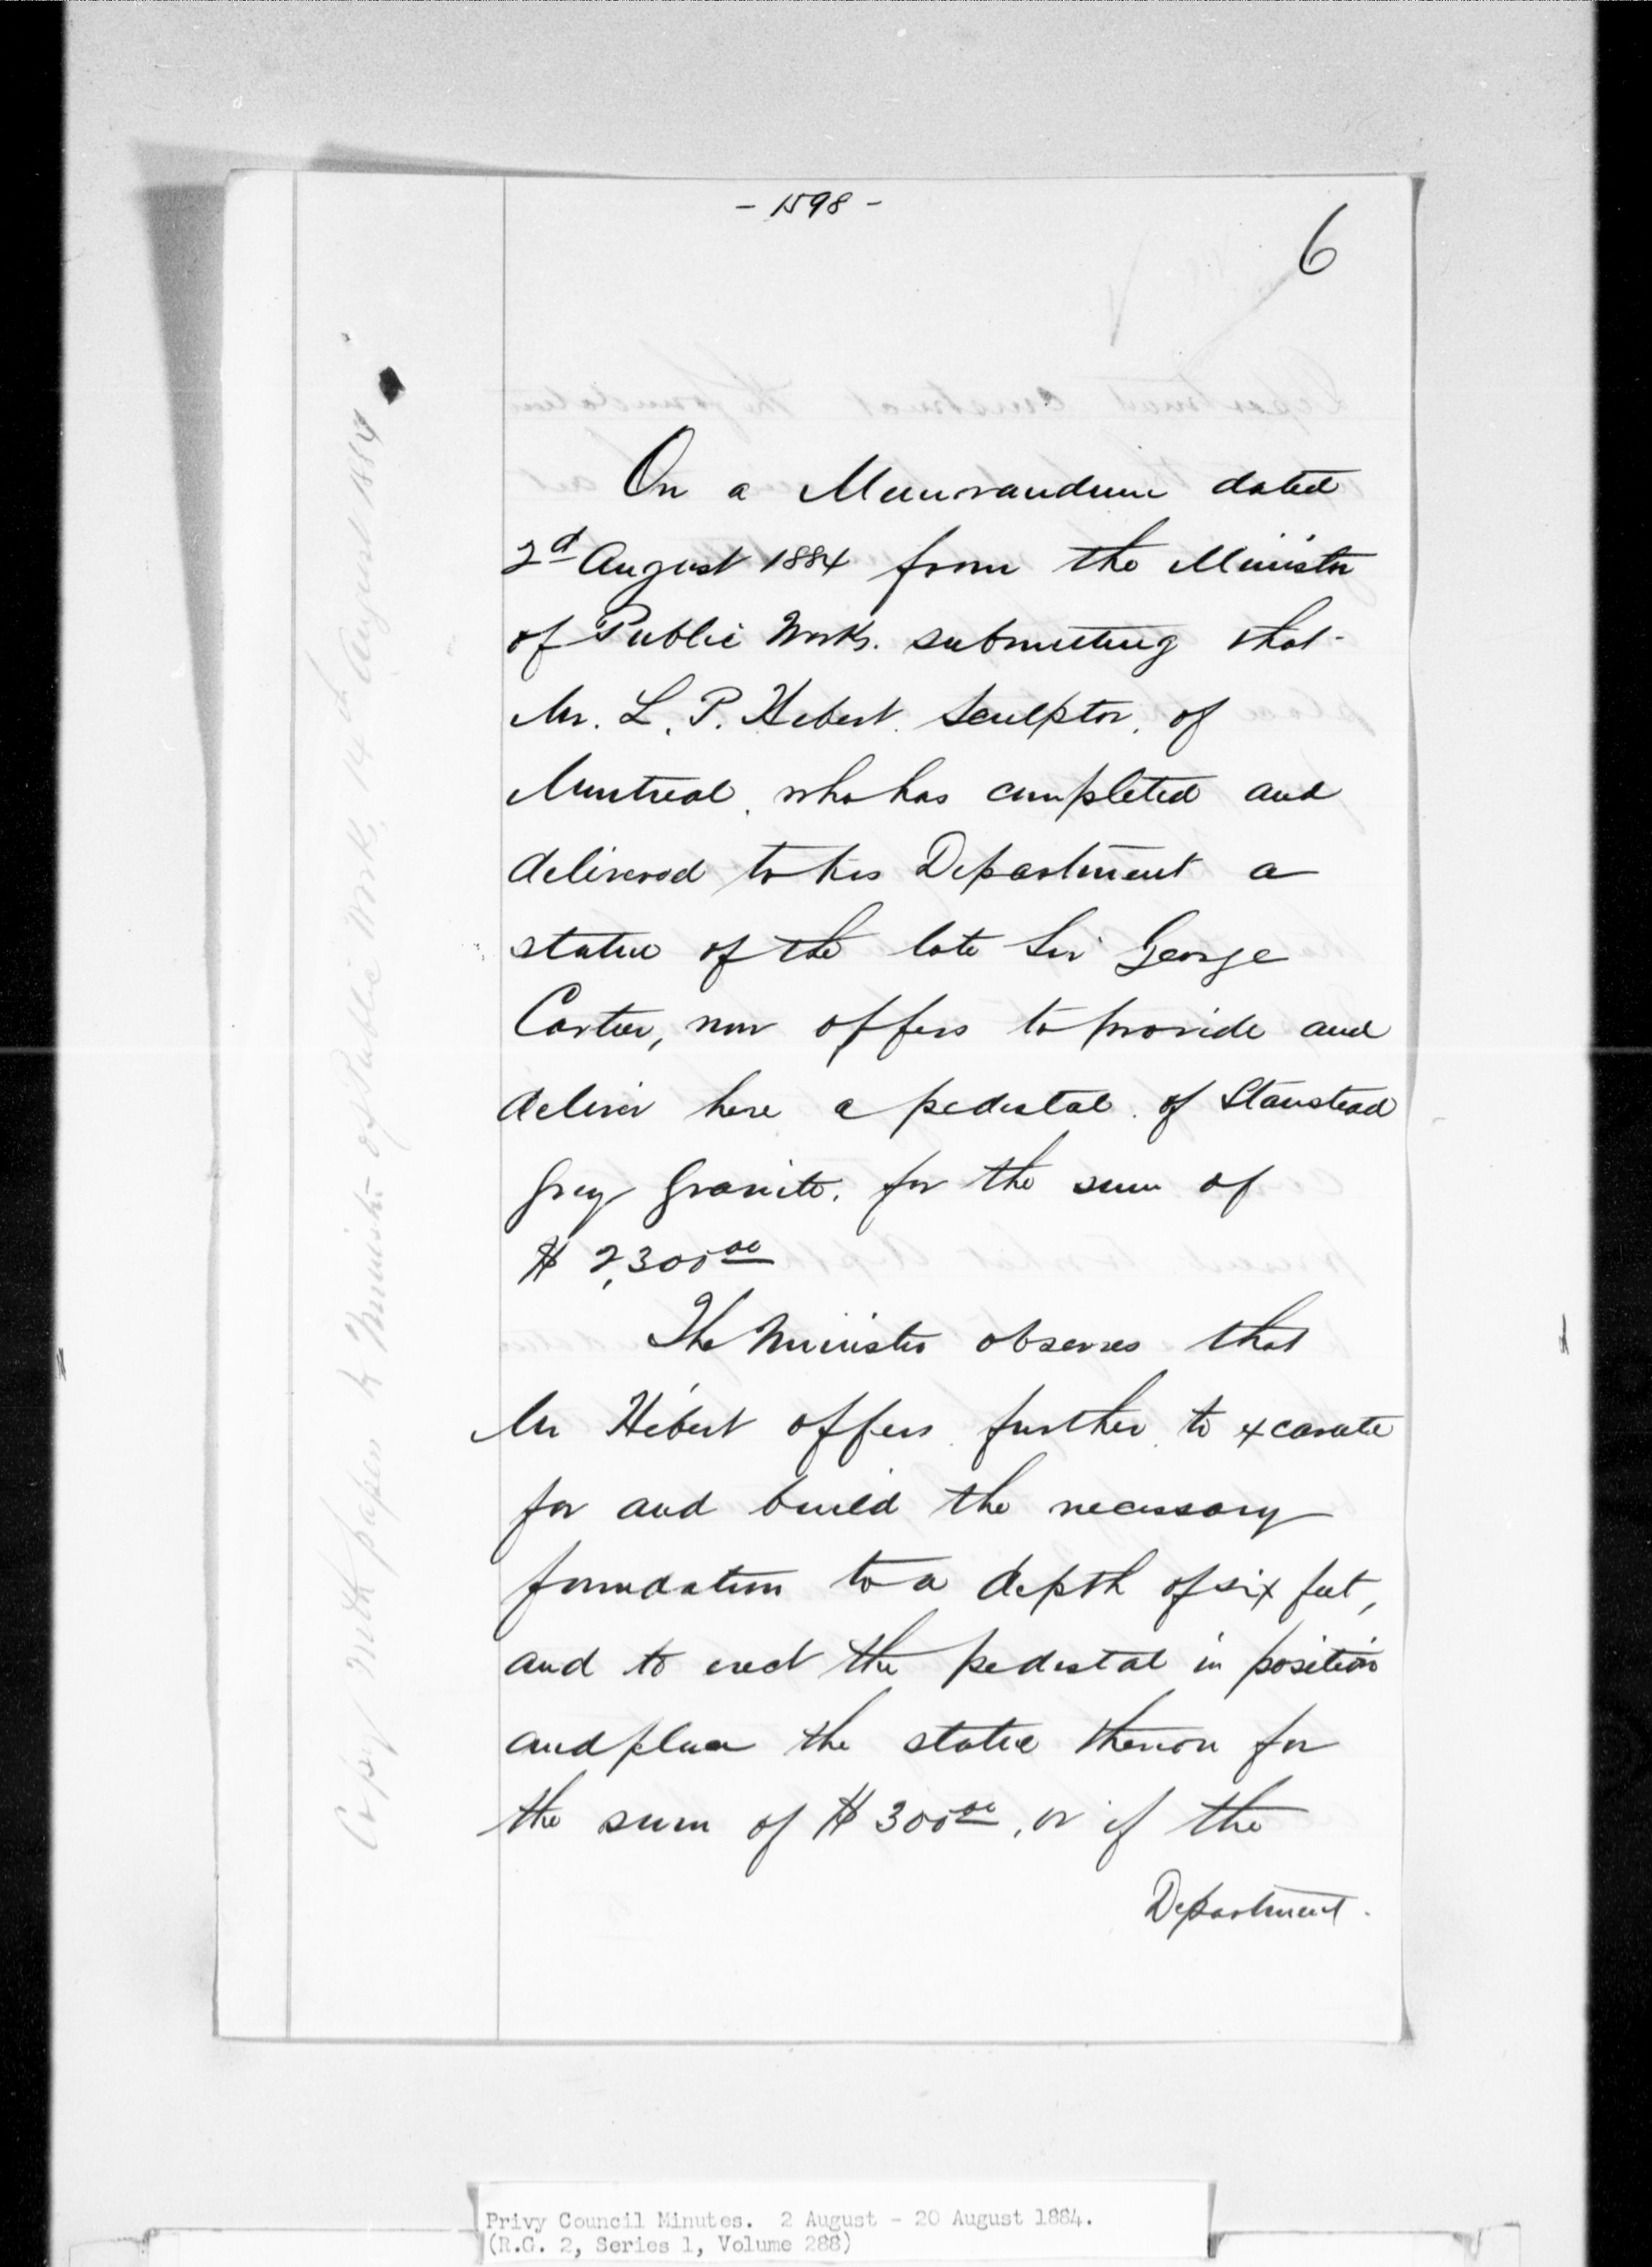 - 1598 -
6
On a Memorandum dated
2d August 1884 from the Minister
of Public Works. submitting that
Mr. L. P. Hebert. Sculptor, of
Montreal, who has completed and
delivered to his Department a
statue of the late Sir George
Cartier, now offers to provide and
deliver here a pedestal of Stanstead
grey granite, for the sum of
$ 2,300 00
The Minister observes that
Mr Hébert offers further to excavate
for and build the necessary
foundation to a depth of six feet,
and to erect the pedestal in position
and place the statue thereon for
the sum of $ 300 00, or if the
Department.
Copy with paper to Minister of Public Works, 14th August 1884
Privy Council Minutes. 2 August - 20 August 1884.
(R.G. 2, Series 1, Volume 288)